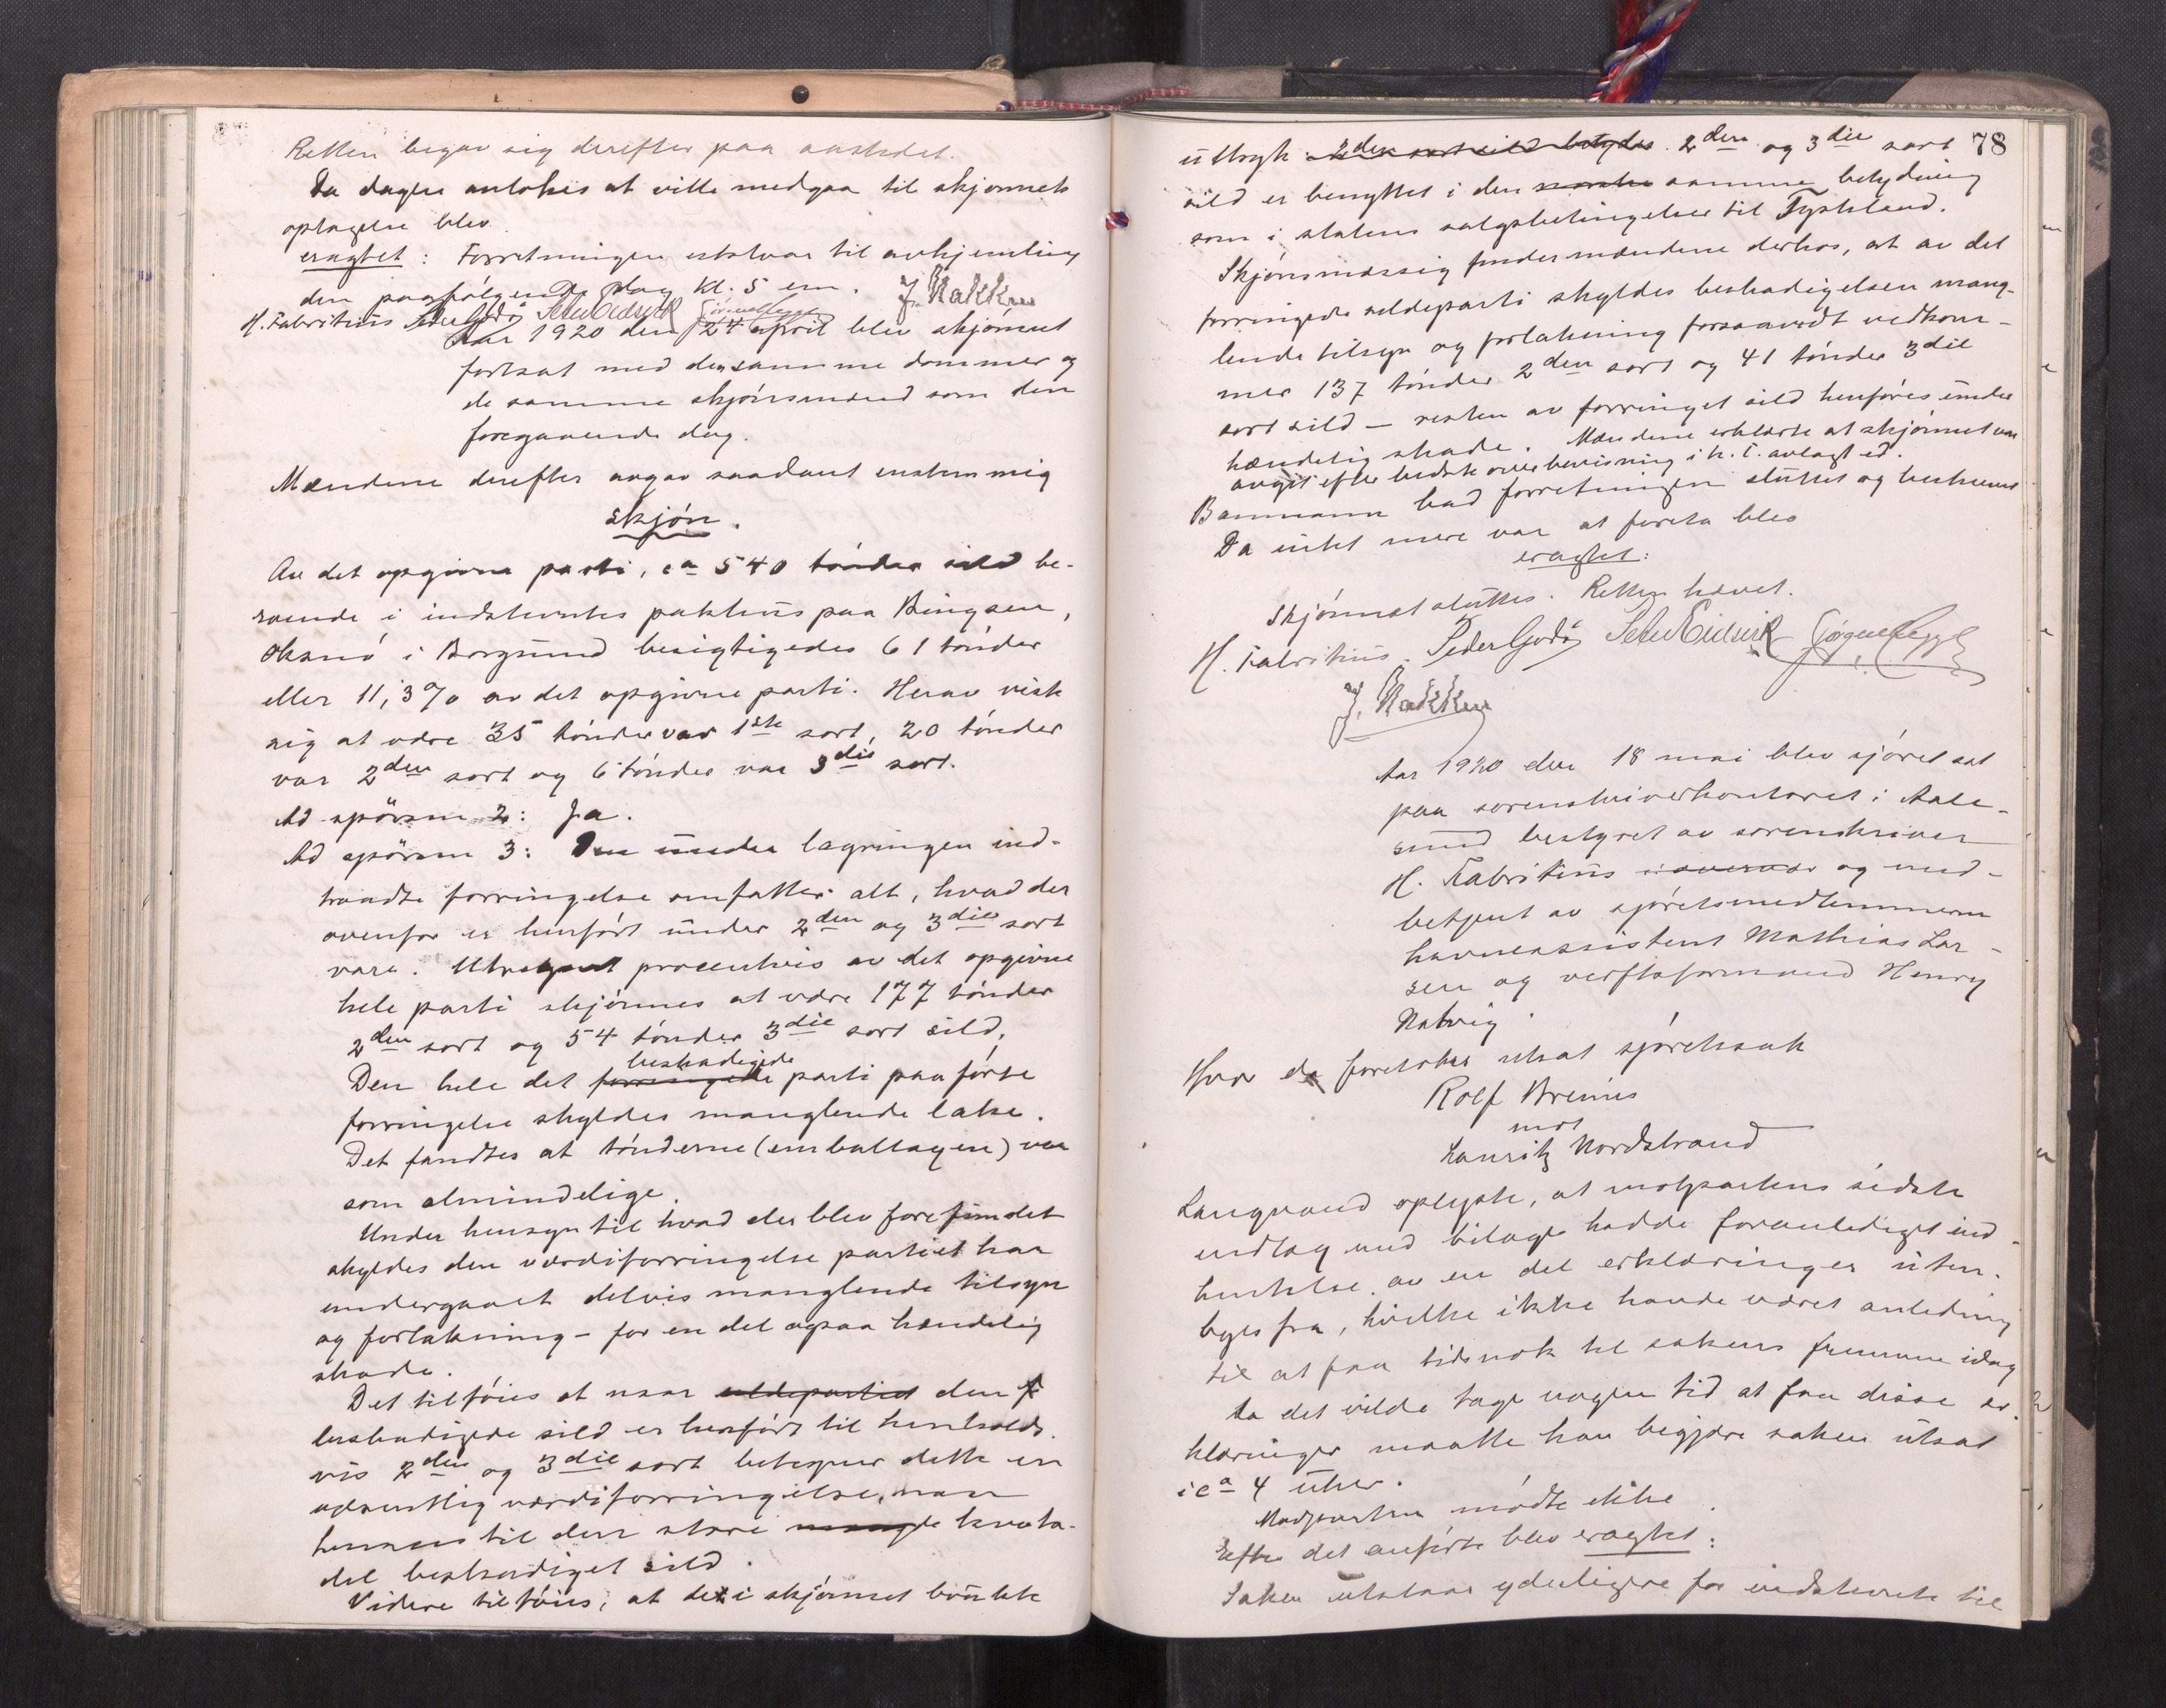 Retten begav sig derefter paa aastedet.
Da dagen antokes at ville medgaa til skjønnets
optagelse blev
eragtet: Forretningen utstaar til avhjemling
den paafølgende dag kl. 5 em. J. Nakken
H. Fabritius Peder Godø Peter Eidsvik
Aar 1920 den 24 april blev skjønnet
fortsat med den samme dommer og
de samme skjønsmænd som den
foregaaende dag.
Mændene derefter avgav saadant enstemmig
skjøn.
Av det opgivne parti, ca 540 tønder sild be-
roende i indstevntes pakhus paa Bingsen,
Oksnø i Borgund besigtigedes 61 tønder
eller 11,3% av det opgivne parti. Herav viste
sig at være 35 tønder var 1ste sort, 20 tønder
var 2den sort og 6 tønder var 3die sort.
Ad spørsm 2: Ja.
Ad spørsm 3: Den under lagringen ind-
traadte forringelse omfatter alt, hvad der
ovenfor er henført under 2den og 3die sort
vare. Utregnet procentvis av det opgivne
hele parti skjønnes at være 177 tønder
2den sort og 54 tønder 3die sort sild.
beskadigede
Den hele det forringede parti paaførte
forringelse skyldes manglende lake.
Det fandtes at tønderne (emballagen) var
som almindelige.
Under hensyn til hvad der blev forefundet
skyldes den værdiforringelse partiet har
undergaaet delvis manglende tilsyn
og forlakning - for en del ogsaa hændelig
skade.
Det tilføies at naar sildepartiet den
beskadigede sild er henført til henholds-
vis 2den og 3die sort betegner dette en
væsentlig værdiforringelse, naar
hensees til den store mængde kvota-
del beskadiget sild.
Videre tilføies, at det i skjønnet brukte
78
uttryk 2den sort sild betydes 2den og 3die sort
sild er benyttet i den norske samme betydning
som i statens salgsbetingelser til Tyskland.
Skjønsmæssig finder mændene derhos, at av det
forringede sildeparti skyldes beskadigelsen mang-
lende tilsyn og forlakning forsaavidt vedkom-
mer 137 tønder 2den sort og 41 tønder 3die
sort sild — resten av forringet sild henføres under
hændelig skade. Mændene erklærte at skjønnet var
avgit efter bedste overbevisning i h. t. avlagt ed.
Bommann bad forretningen sluttet og beskreven
Da intet mere var at foreta blev
eragtet:
Skjønnet sluttes. Retten hævet.
H. Fabritius. Peder Godø Peter Eidsvik
J. Nakken
Aar 1920 den 18 mai blev sjøret sat
paa sorenskriverkontoret i Aale-
sund bestyret av sorenskriver
H. Fabritius og med-
betjent av sjøretsmedlemmerne
havneassistent Mathias Lar-
sen og verftsformand Henry
Natvig.
Hvor da foretokes utsat sjøretssak
Rolf Breines
mot
Lauritz Nordstrand
Langvand oplyste, at motpartens sidste
indlæg med bilage hadde foranlediget ind-
hentelse av en del erklæringer uten-
bygs fra, hvilke ikke havde været anledning
til at faa tidsnok til sakens fremme idag
da det vilde tage nogen tid at faa disse er-
klæringer maatte han begjære saken utsat
i ca 4 uker.
Motparten mødte ikke.
Efter det anførte blev eragtet:
Saken utstaar yderligere for indstevnte til